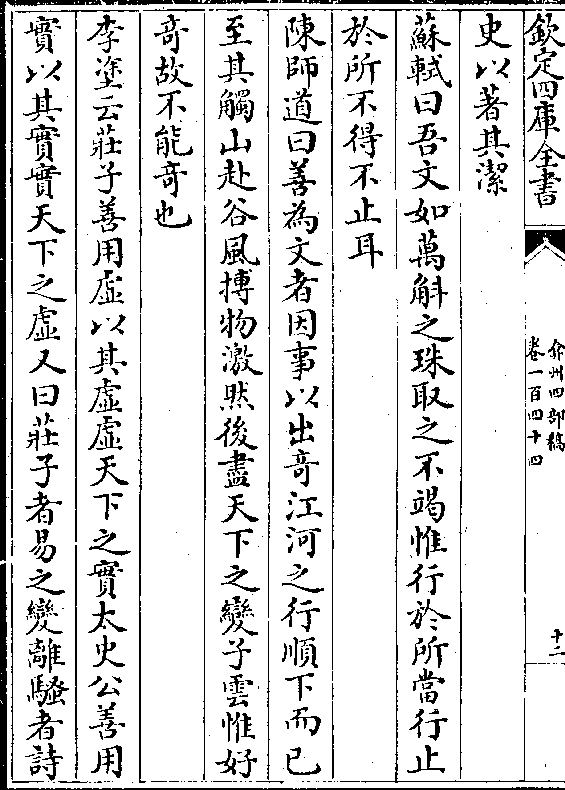 欽定四庫全書
弇州四部稿
卷一百四十四
十二
史以著其潔
蘇軾曰吾文如萬斛之珠取之不竭惟行於所當行止
於所不得不止耳
陳師道曰善為文者因事以出竒江河之行順下而已
至其觸山赴谷風搏物激然後盡天下之變子雲惟好
竒故不能竒也
李塗云莊子善用虛以其虛虛天下之實太史公善用
實以其實實天下之虛又曰莊子者易之變離騷者詩